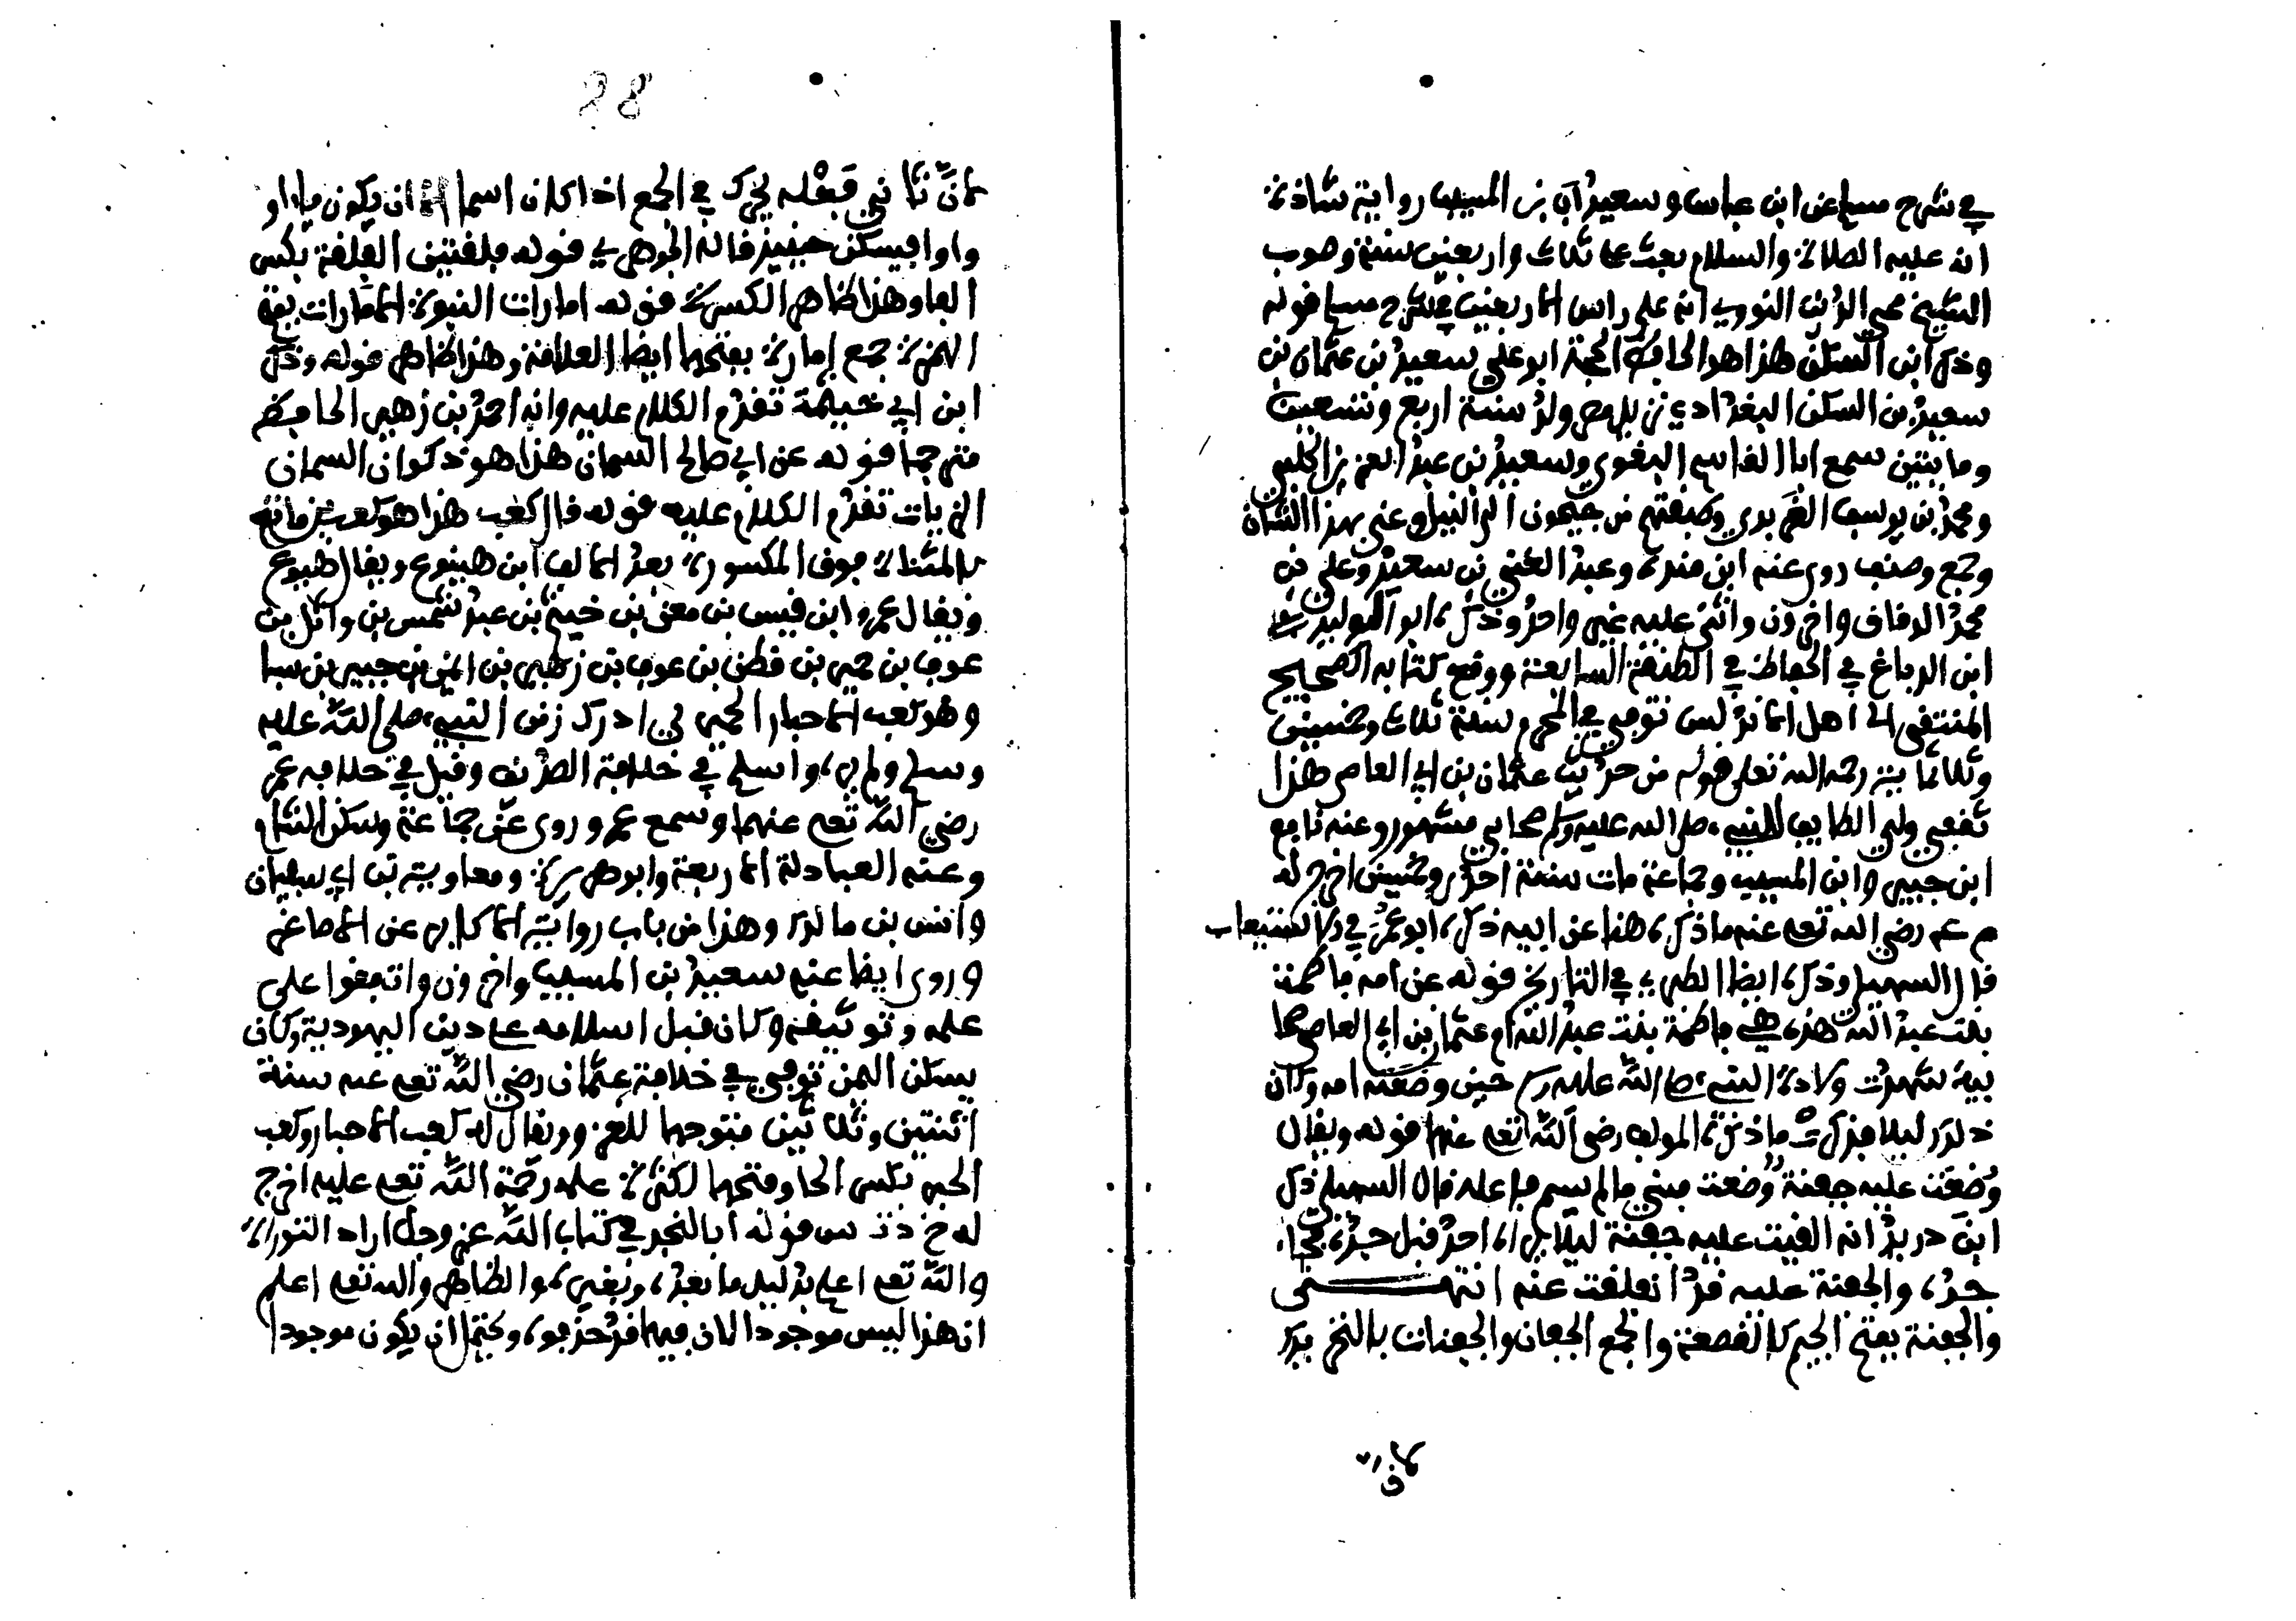 في شرح مسلم عن ابن عباس وسعيد بن المسيب رواية شاذة
انه عليه الصلاة والسلام بعث على ثلاث واربعين سنة وصوب
الشيخ محي الدين النووي انه على راس الاربعين في شرح مسلم قوله
وذكر ابن السكن هذا هو الحافظ الحجة ابو علي سعيد بن عثمان بن
سعيد بن السكن البغدادي نزيل مصر ولد سنة اربع وتسعين
وما يتين سمع ابا القاسم البغوي وسعيد بن عبد العزيز الحلبي
ومحمد بن يوسف الفربري وطبقتهم من جيحون الى النيل وعني بهذا الشان
وجمع وصنف روى عنه ابن مندة وعبد الغني بن سعيد وعلي بن
محمد الدقاق واخرون واثنى عليه غير واحد وذكره ابو الوليد
ابن الدباغ في الحفاظ في الطبقة السابعة ووقع كتابه الصحيح
المنتقى الى اهل الاندلس توفي في المحرم سنة ثلاث وخمسين
وثلاثمائية رحمه الله تعلى قوله من حديث عثمان بن ابي العاص هذا
ثقفي ولي الطايف للنبي صلى الله عليه وسلم صحابي مشهور وعنه نافع
ابن جبير وابن المسيب وجماعة مات سنة احدى وخمسين اخرج له
م عه رضي الله تعه عنه ما ذكره هنا عن ابيه ذكره ابو عمر في الاستيعاب
قال السهيلي وذكره ايضا الطبري في التاريخ قوله عن امه فاطمة
بنت عبد الله هذه هي فاطمة بنت عبد الله ام عثمان بن ابي العاص صحا
بية شهدت ولادة النبي صلى الله عليه وسلم حين وضعته امه وكان
ذلك ليلا فذكرت ما ذكره المولف رضي الله تعه عنه قوله ويقال
وضعت عليه جفنة وضعت مبني ما لم يسم فاعله قال السهيلي ذكر
ابن دريد انه القيت عليه جفنة ليلا يراه احد قبل جده فجاء
جده والجفنة عليه قد انفلقت عنه انتهى
والجفنة بفتح الجيم كالقصعة والجمع الجفان والجفنات بالتحريك
لان

28
لان ثاني فعله يحرك في الجمع اذا كان اسما الا ان يكون ياء او
واوا فيسكن حينيذ قاله الجوهري قوله فلقتين الفلقة بكسر
الفا وهذا ظاهر الكسرة قوله امارات النبوة الامارات بفتح
الهمزة جمع امارة بفتحها ايضا العلامة وهذا ظاهر قوله وذكر
ابن ابي خيثمة تقدم الكلام عليه وانه احمد بن زهير الحافظ
مترجما قوله عن ابي صالح السمان هذا هو ذكوان السمان
الزيات تقدم الكلام عليه قوله قال كعب هذا هو كعب بن ماتع
بالمثناة فوق المكسورة بعد الالف ابن هينوع ويقال هيوع
ويقال عمرو ابن قيس بن معن بن خيثم بن عبد شمس بن وائل بن
عوف بن حمير بن قطن بن عوف بن زهير بن ايمن بن حمير بن سبا
وهو كعب الاحبار الحميري ادرك زمن النبي صلى الله عليه
وسلم ولم يره واسلم في خلافة الصديق وقيل في خلافة عمر
رضي الله تعه عنهما وسمع عمر وروى عنه جماعة وسكن الشام
وعنه العبادلة الاربعة وابو هريرة ومعاوية بن ابي سفيان
وانس بن مالك وهذا من باب رواية الاكابر عن الاصاغر
وروى ايضا عنه سعيد بن المسيب واخرون واتفقوا على
علمه وتوثيقه وكان قبل اسلامه على دين اليهودية وكان
يسكن اليمن توفي في خلافة عثمان رضي الله تعه عنه سنة
اثنتين وثلاثين متوجها للغزو ويقال له كعب الاحبار وكعب
الحبر بكسر الحا وفتحها لكثرة علمه رحمة الله تعه عليه اخرج
له خ د ت س قوله انا لنجد في كتاب الله عز وجل اراد التوراة
والله تعه اعلم بدليل ما بعده وبغيره والظاهر والله تعه اعلم
ان هذا ليس موجودا الان فيها قد حذفوه ويحتمل ان يكون موجودا